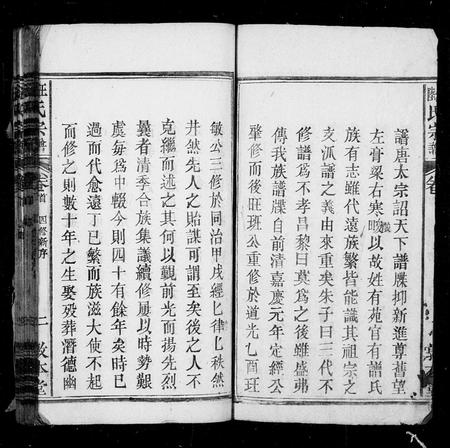 譜唐太宗詔天下譜牒抑新進尊舊望
左膏粱右寒畯以故姓有苑官有譜氏
族有志雖代遠族繁皆能識其祖宗之
支派譜之義由來重矣朱子曰三代不
修譜爲不孝昌黎曰莫爲之後雖盛弗
傳我族譜牒自前清嘉慶元年定經公
肇修而後旺班公重修於道光乙酉班
敏公三修於同治甲戌經七律七秩然
井然先人之貽謀可謂至矣後之人不
克繼而述之其何以觀前光而揚先烈
曩者清季合族集議續修屢以時勢艱
虞每爲中輟今則四十有餘年矣時已
過而代愈遠丁已繁而族滋大使不起
而修之則數十年之生娶歿葬潛德幽
汪氏宗譜 卷首 四修新序 二 敦本堂